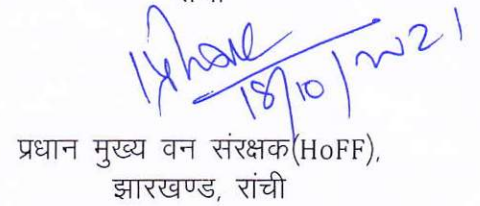 18/10/2021
प्रधान मुख्य वन संरक्षक(HoFF),
झारखण्ड, रांची